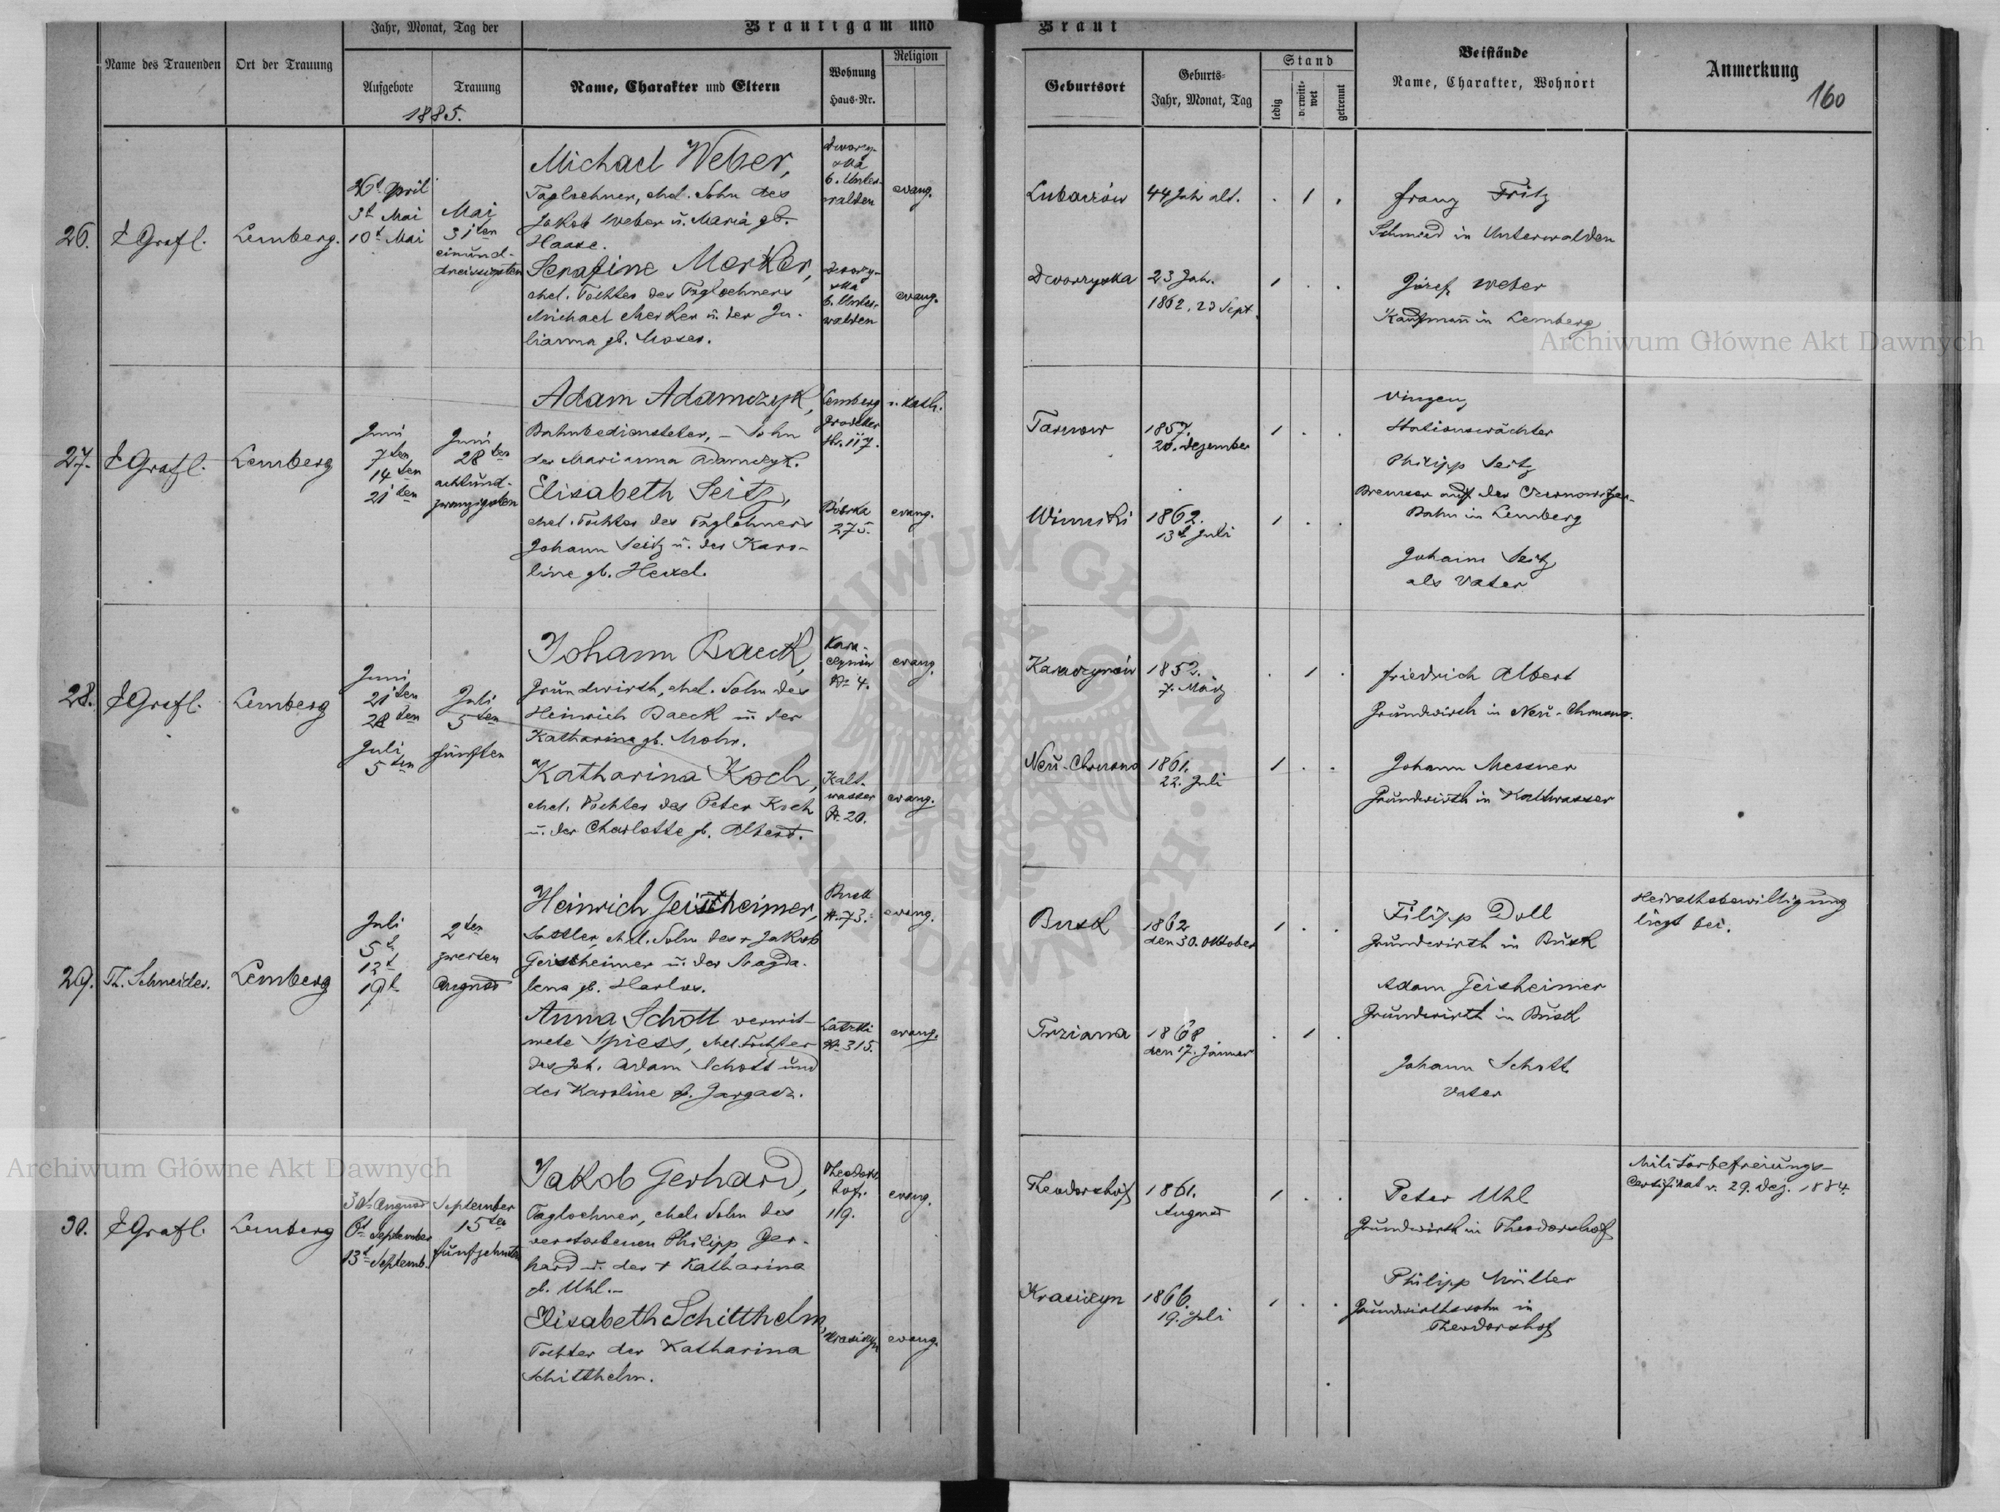 Bräutigam und
Braut
Name des Trauenden
Ort der Trauung
Jahr, Monat, Tag der
Aufgebote
Trauung
1885.
Name, Charakter und Eltern
Wohnung
Haus-Nr.
Religion
Geburtsort
Geburts-
Jahr, Monat, Tag
Stand
ledig
verwitt-
wet
getrennt
Beistände
Name, Charakter, Wohnort
Anmerkung
160
26.
E Grafl.
Lemberg.
26t April
3t Mai
10t Mai
Mai
31ten
einund-
dreissigsten
Michael Weber,
Tagloehner, ehel. Sohn des
Jakob Weber u. Maria gb.
Haase.
Serafine Merker,
ehel. Tochter des Taglöhners
Michael Merker u. der Ju-
lianna gb. Moser.
b. Unter-
walden
evang.
b. Unter-
walden
evang.
Lubaczów
44 Jahr alt.
Franz Fritz
Schmied in Unterwalden
23 Jah.
1862. 23 Sept.
Józef Weber
Kaufmann in Lemberg
27.
E Grafl.
Lemberg
Juni
7ten
14ten
21ten
Juni
28ten
achtund-
zwanzigsten
Adam Adamczyk,
Bahnbediensteter, – Sohn
der Marianna Adamczyk.
Elisabeth Seitz,
ehel. Tochter des Taglöhners
Johann Seitz u. der Karo-
line gb. Hexel.
Lemberg
Grodeker
Nr. 117.
r. kath.
Bóbrka
275.
evang.
Tarnow
1857.
20. Dezember
Stationswächter
Philipp Seitz
Bremser auf der Czernowitzer-
Bahn in Lemberg
Winniki
1862.
13t Juli
Johann Seitz
als Vater
28.
E Grafl.
Lemberg
Juni
21ten
28ten
Juli
5ten
Juli
5ten
fünften
Johann Baeck,
Grundwirth, ehel. Sohn des
Heinrich Baeck u. der
Katharina gb. Mohr.
Katharina Koch,
ehel. Tochter des Peter Koch
u. der Charlotte gb. Albert.
Nr 4.
evang.
Kalt-
wasser
Nr. 20.
evang.
1852.
7. März
Friedrich Albert
Grundwirth in Neu-Chrusno.
Neu-Chrusno
1861.
22. Juli
Johann Messner
Grundwirth in Kaltwasser
29.
Th. Schneider.
Lemberg
Juli
5t
12t
19t
2ten
zweiten
August
Heinrich Geistheimer,
Sattler, ehel. Sohn des † Jakob
Geistheimer u. der Magda-
lena gb. Harlos.
Anna Schott verwit-
wete Spiess, ehel. Tochter
des Joh. Adam Schott und
der Karoline gb. Jargasz.
Busk
Nr. 73.
evang.
Nr. 315.
evang.
Busk
1862
den 30. Oktober
Filipp Doll
Grundwirth in Busk
Adam Geisheimer
Grundwirth in Busk
Johann Schott
Vater
1868
den 17. Jänner
Heirathsbewilligung
liegt bei.
30.
E Grafl.
Lemberg
30t August
6t September
13t Septemb.
September
15ten
fünfzehnten
Jakob Gerhard,
Taglöhner, ehel. Sohn des
verstorbenen Philipp Ger-
hard u. der † Katharina
gb. Uhl.–
Elisabeth Schitthelm,
Tochter der Katharina
Schitthelm.
Theodors-
hof.
119.
evang.
Krasiczyn
evang.
Theodorshof
1861.
August
Peter Uhl
Grundwirth in Theodorshof
Krasiczyn
1866.
19. Juli
Philipp Müller
Grundwirthssohn in
Theodorshof
Militärbefreiungs-
Certifikat v. 29. Dez. 1884.
Archiwum Główne Akt Dawnych
Archiwum Główne Akt Dawnych
ARCHIWUM GŁÓWNE AKT DAWNYCH